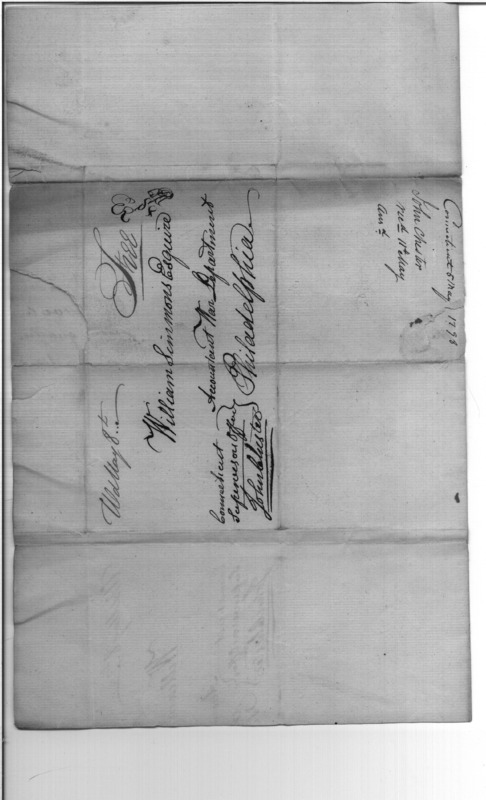 Connecticut 8 May 1798
John Chester
Rec'd 11th May
Ans'd
Free
William Simmons Esquire
Accountant War Department
Philadelphia
May 8th
Connecticut
Supervisors Office
John Chester